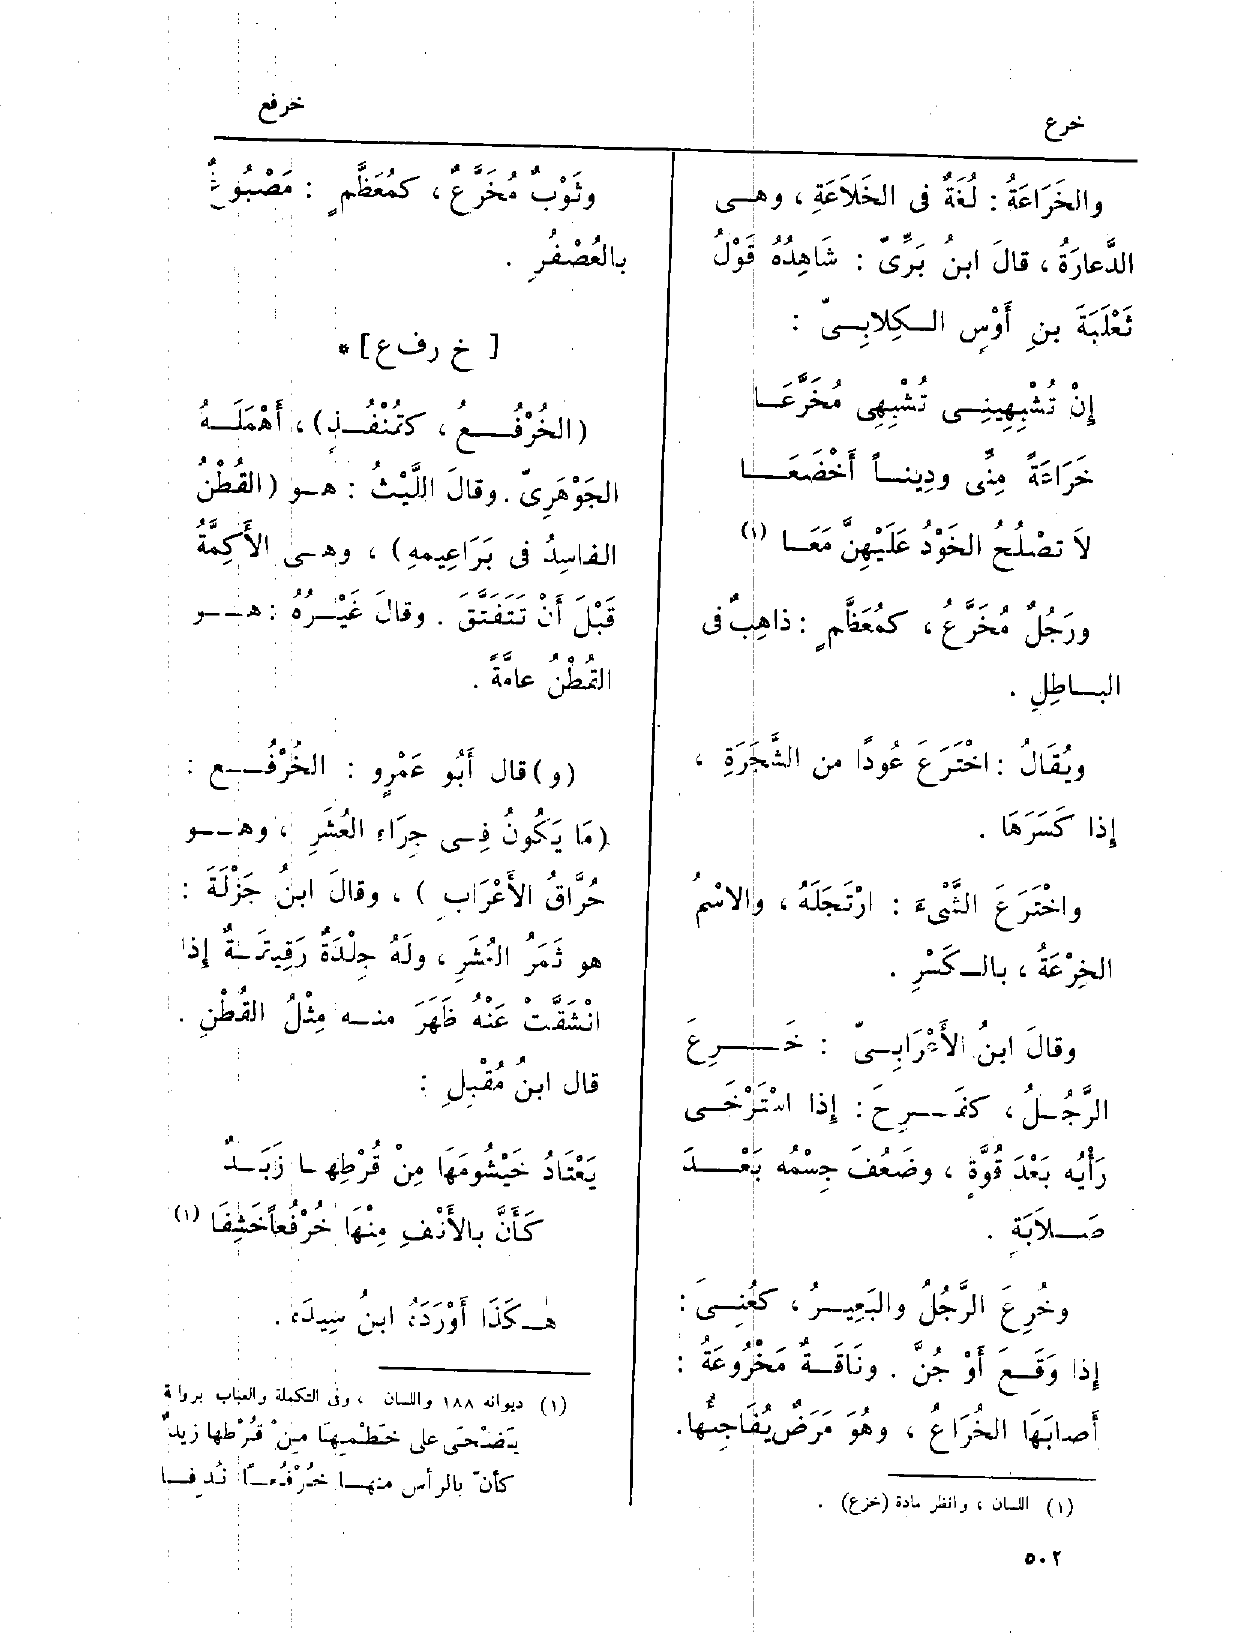 خرع
خرفع
والخَرَاعَةُ : لُغَةٌ فى الخَلاَعَةِ ، وهـى
الدَّعارَةُ ، قالَ ابنُ بَرِّىّ : شَاهِدُهُ قَوْلُ
ثَعْلَبَةَ بنِ أَوْسٍ الـكِلابِـىّ :
إِنْ تُشْبِهِينِـى تُشْبِهِى مُخَرَّعَـا
خَرَاعَةً مِنِّى ودِينـاً أَخْضَعَـا
لاَ تصْلُحُ الخَوْدُ عَلَيْهِنَّ مَعَـا (١)
ورَجُلٌ مُخَرَّعُ ، كمُعَظَّمٍ : ذاهِبٌ فى
البـاطِلِ .
ويُقَالُ : اخْتَرَعَ عُودًا من الشَّجَرَةِ ،
إِذا كَسَرَهَا .
واخْتَرَعَ الشَّىْءَ : ارْتَجَلَهُ ، والاسْمُ
الخِرْعَةُ ، بالـكَسْرِ .
وقالَ ابنُ الأَعْرَابِـىّ : خَـــرِعَ
الرَّجُـلُ ، كفَــرِحَ : إِذا اسْتَرْخَـى
رَأْيُه بَعْدَ قُوَّةٍ ، وضَعُفَ جِسْمُه بَعْــدَ
صَـلابَةٍ .
وخُرِعَ الرَّجُلُ والبَعِيـرُ ، كعُنِـىَ :
إِذا وَقَـعَ أَوْ جُنَّ . ونَاقَـةٌ مَخْرُوعَةُ :
أَصابَهَا الخُرَاعُ ، وهُوَ مَرَضٌ يُفَاجِئُها.
(١) اللسان ، وانظر مادة (خزع) .
٥٠٢
وثَوْبٌ مُخَرَّعٌ ، كمُعَظَّمٍ : مَصْبُوغٌ
بالعُصْفُرِ .
[ خ ر ف ع ] *
(الخُرْفُــعُ ، كقُنْفُـذٍ) ، أَهْمَلَـهُ
الجَوْهَرِىّ . وقالَ اللَّيْثُ : هـو (القُطْنُ
الفاسِدُ فى بَرَاعِيمِهِ) ، وهـى الأَكِمَّةُ
قَبْلَ أَنْ تَتَفَتَّقَ . وقالَ غَيْـرُهُ : هــو
القُطْنُ عامَّةً .
(و) قال أَبُو عَمْرٍو : الخُرْفُــع :
(مَا يَكُونُ فِـى جِرَاءِ العُشَرِ ، وهــو
حُرَّاقُ الأَعْرَابِ ) ، وقالَ ابنُ جَزْلَةَ :
هو ثَمَرُ العُشَرِ ، ولَهُ جِلْدَةٌ رَقِيقَـةٌ إِذا
انْشَقَّتْ عَنْهُ ظَهَرَ منـه مِثْلُ القُطْنِ .
قال ابنُ مُقْبِلٍ :
يَعْتَادُ خَيْشُومَهَا مِنْ فُرْطِهـا زَبَـدٌ
كَأَنَّ بالأَنْفِ مِنْهَا خُرْفُعاً خَشِفَا (١)
هـكَذَا أَوْرَدَهُ ابنُ سِيدَه .
(١) ديوانه ١٨٨ واللسان ، وفى التكملة والعباب برواية
يَضْحَى على خَطْمِهَا مِنْ فُرْطها زبدٌ
كأن بالرأس منهـا خُرْفُعـًا نُدِفـا